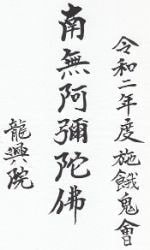 令和二年度施餓鬼會
南無阿彌陀佛
龍興院